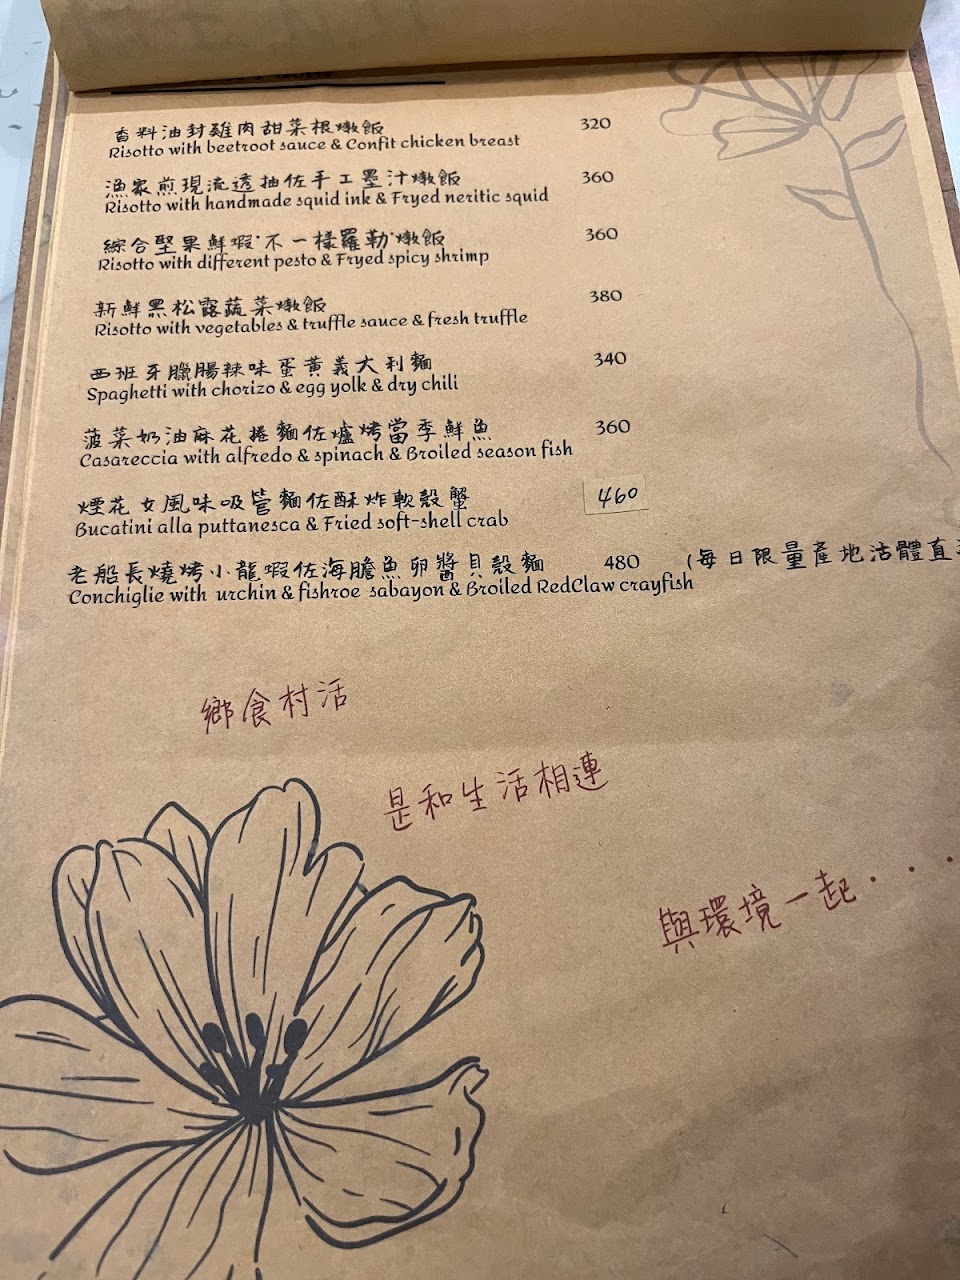 香料油封雞肉甜菜根燉飯 320
Risotto with beetroot sauce & Confit chicken breast
漁家煎現流透抽佐手工墨汁燉飯 360
Risotto with handmade squid ink & Fryed neritic squid
綜合堅果鮮蝦"不一樣羅勒"燉飯 360
Risotto with different pesto & Fryed spicy shrimp
新鮮黑松露蔬菜燉飯 380
Risotto with vegetables & truffle sauce & fresh truffle
西班牙臘腸辣味蛋黃義大利麵 340
Spaghetti with chorizo & egg yolk & dry chili
菠菜奶油麻花捲麵佐爐烤當季鮮魚 360
Casareccia with alfredo & spinach & Broiled season fish
煙花女風味吸管麵佐酥炸軟殼蟹 460
Bucatini alla puttanesca & Fried soft-shell crab
老船長燒烤小龍蝦佐海膽魚卵醬貝殼麵 480 (每日限量產地活體直
Conchiglie with urchin & fishroe sabayon & Broiled RedClaw crayfish
鄉食村活
是和生活相連
與環境一起···